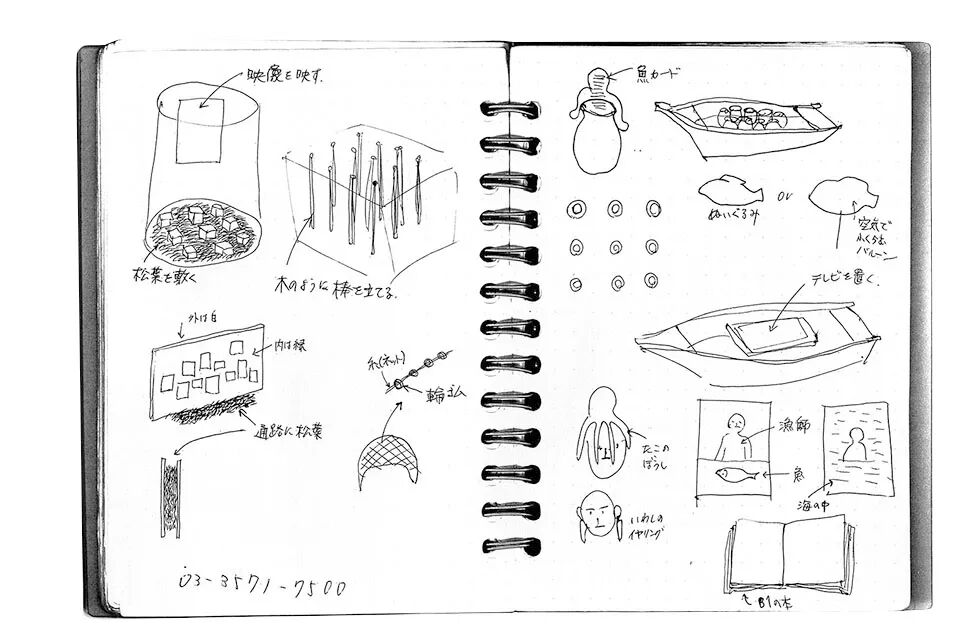 映像を映す.
松葉を敷く
木のように棒を立てる.
外は白
内は緑
通路に松葉
糸(ネット)
輪ゴム
03-3571-7500
魚カード
ぬいぐるみ
or
空気で
ふくらむ
バルーン
テレビを置く.
たこの
ぼうし
漁師
魚
海の中
いわしの
イヤリング
B1の本